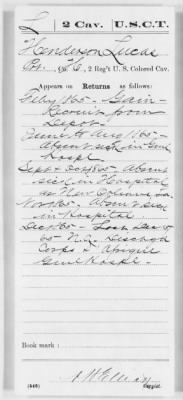 L 2 Cav. U.S.C.T.
Henderson Lucas
Co. 2 Reg't U. S. Colored Cav.
Appears on Returns as follows:
Feby 1865 - Gain -
Recruit from
Depot.
June to Aug 1865 -
Absent sick in Genl
Hospl.
Sept & Oct 1865 - Absent
sick in Hospital
at New Orleans La.
Nov 1865 - Absent sick
in Hospital.
Dec 1865 - Loss Dec
65 Dischgd
Genl Hospl.
Book mark:
(546)
Copyist.